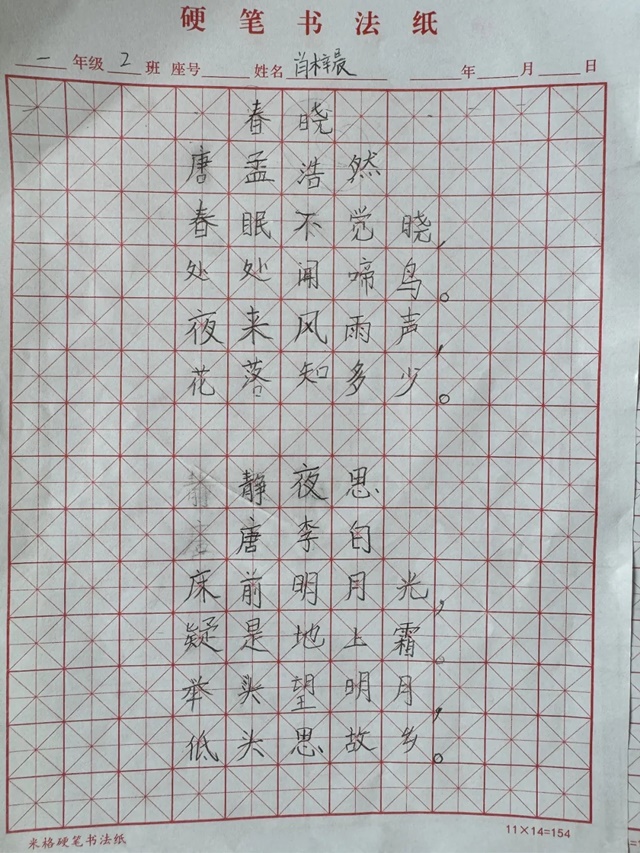 硬笔书法纸
一年级2班 座号 姓名闫梓晨 年 月 日
春晓
唐孟浩然
春眠不觉晓,
处处闻啼鸟。
夜来风雨声,
花落知多少。
静夜思
唐李白
床前明月光,
疑是地上霜。
举头望明月,
低头思故乡。
米格硬笔书法纸
11×14=154